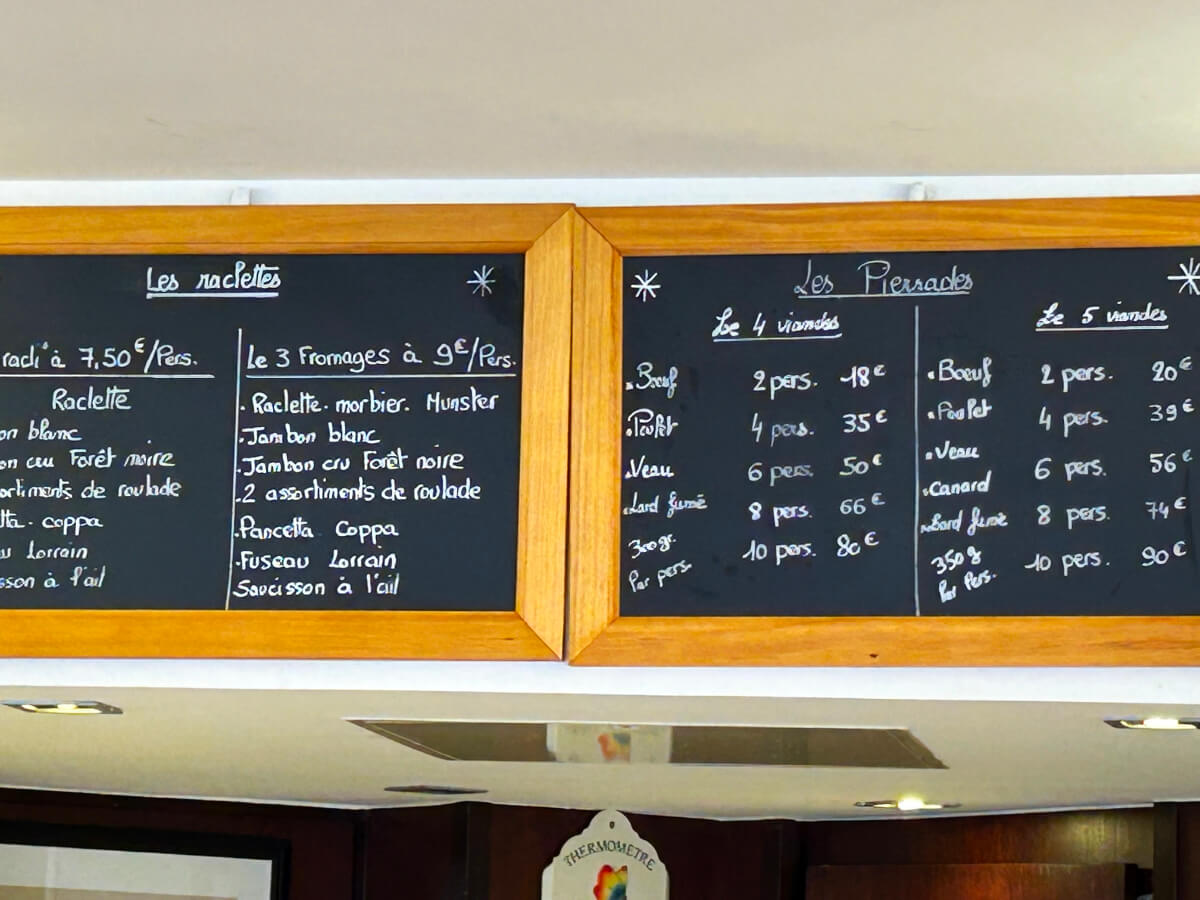 Les raclettes
radi' à 7,50€/Pers.
Raclette
on blanc
on cru Forêt noire
ortiments de roulade
tta. coppa
au Lorrain
sson à l'ail
Le 3 Fromages à 9€/Pers.
. Raclette. morbier. Munster
.Jambon blanc
.Jambon cru Forêt noire
.2 assortiments de roulade
.Pancetta Coppa
.Fuseau Lorrain
Saucisson à l'ail
Les Pierrades
Le 4 viandes
.Bœuf 2 pers. 18€
.Poulet 4 pers. 35€
.Veau 6 pers. 50€
.Lard fumé 8 pers. 66€
300gr. 10 pers. 80€
Par pers.
Le 5 viandes
.Bœuf 2 pers. 20€
.Poulet 4 pers. 39€
.Veau 6 pers. 56€
.Canard
.Lard fumé 8 pers. 74€
350g 10 pers. 90€
Par Pers.
THERMOMETRE